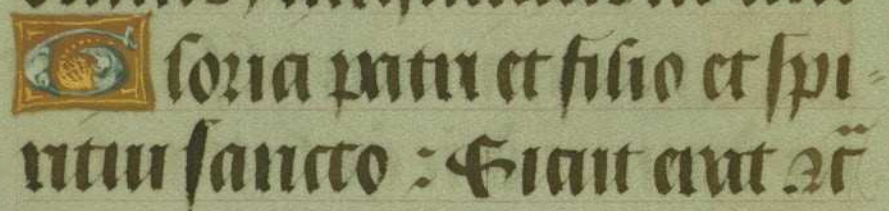 Gloria patri et filio et spi-
ritui sancto : Sicut erat &c̄